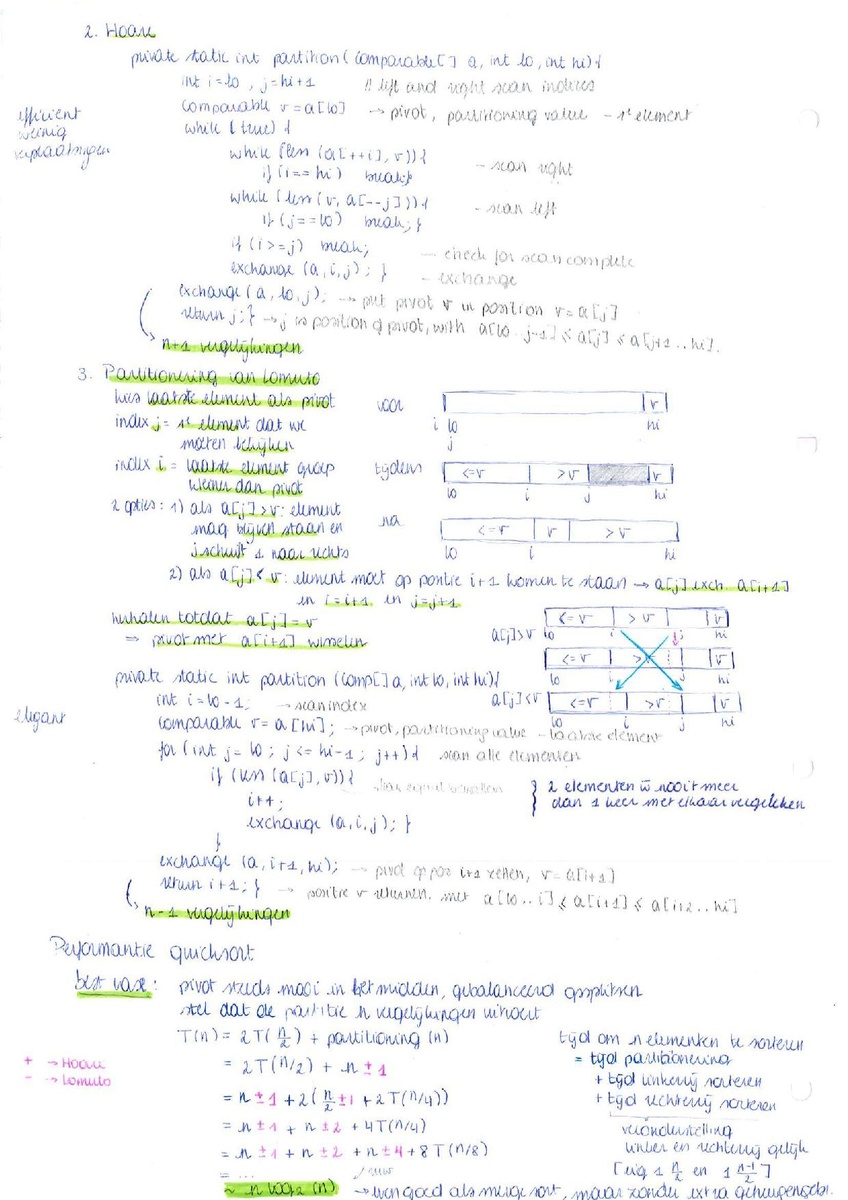 2. Hoare
private static int partition (Comparable[] a, int lo, int hi) {
int i=lo , j=hi+1 // left and right scan indices
Comparable v = a[lo] → pivot, partitioning value - 1e element
efficient
weinig
verplaatsingen
while (true) {
while (less (a[++i], v)) {
if (i == hi) break; }
- scan right
while (less (v, a[--j])) {
if (j==lo) break; }
- scan left
if (i >= j) break; - check for scan complete
exchange (a, i, j); } - exchange
exchange (a, lo, j); → put pivot v in position v = a[j]
return j; } → j is position of pivot, with a[lo..j-1] ≤ a[j] ≤ a[j+1..hi].
n+1 vergelijkingen
3. Partitionering van Lomuto
kies laatste element als pivot
index j = 1e element dat we
moeten bekijken
index i = laatste element groep
kleiner dan pivot
2 opties: 1) als a[j] > v: element
mag blijven staan en
j schuift 1 naar rechts
voor
v
i lo hi
j
tijdens
<=v >v v
lo i j hi
na
<=v v >v
lo i hi
2) als a[j] < v: element moet op positie i+1 komen te staan → a[j] exch. a[i+1]
en i=i+1 en j=j+1
herhalen totdat a[j] = v
⇒ pivot met a[i+1] wisselen
a[j]>v
<=v >v v
lo i j hi
<=v >v v
lo i j hi
a[j]<v
<=v >v v
lo i j hi
private static int partition (Comp[] a, int lo, int hi) {
int i = lo-1; → scanindex
elegant
Comparable v = a[hi]; → pivot, partitioning value - laatste element
for (int j = lo ; j <= hi-1 ; j++) { scan alle elementen
if (less (a[j], v)) {
i++;
exchange (a, i, j); }
}
2 elementen w nooit meer
dan 1 keer met elkaar vergeleken
exchange (a, i+1, hi); → pivot op pos i+1 zetten, v = a[i+1]
return i+1; } → positie v returnen, met a[lo..i] ≤ a[i+1] ≤ a[i+2..hi]
n-1 vergelijkingen
Performantie quicksort
best case: pivot steeds mooi in het midden, gebalanceerd opsplitsen
stel dat de partitie n vergelijkingen uitvoert
T(n) = 2T(n/2) + partitioning (n)
= 2T(n/2) + n ±1
= n ±1 + 2(n/2 ±1 + 2T(n/4))
= n ±1 + n ±2 + 4T(n/4)
= n ±1 + n ±2 + n ±4 + 8T(n/8)
= ...
~ n log2 (n) → even goed als merge sort, maar zonder extra geheugengebr.
+ → Hoare
- → Lomuto
tijd om n elementen te sorteren
= tijd partitionering
+ tijd linkerrij sorteren
+ tijd rechterrij sorteren
veronderstelling
linker en rechterrij gelijk
[eig 1 n/2 en 1 n-1/2]